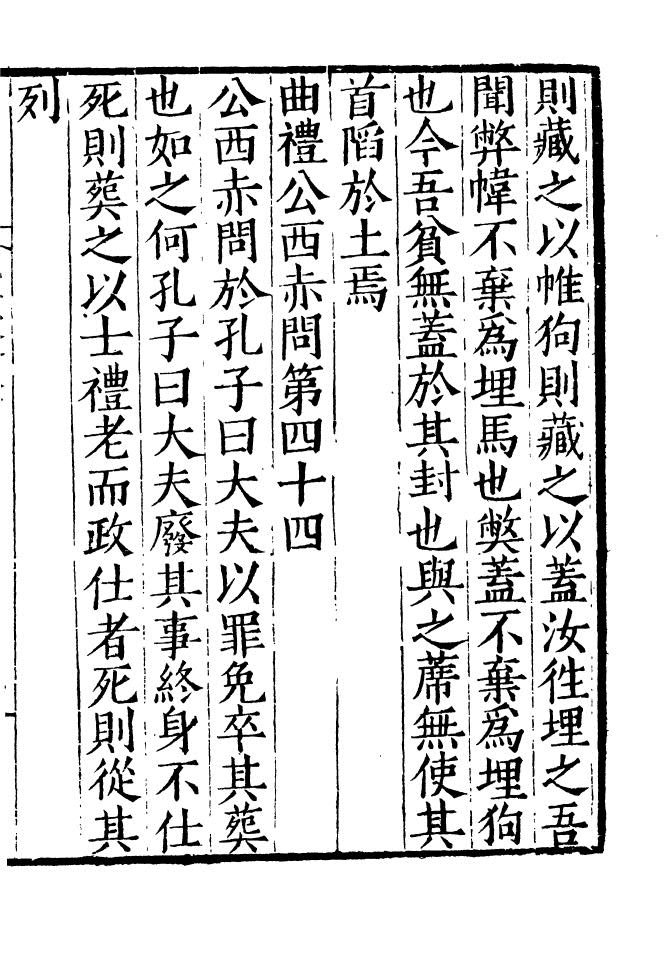 則藏之以帷狗則藏之以蓋汝徃埋之吾
聞弊幃不棄爲埋馬也弊蓋不棄爲埋狗
也今吾貧無蓋於其封也與之蓆無使其
首䧟於土焉
曲禮公西赤問第四十四
公西赤問於孔子曰大夫以罪免卒其葬
也如之何孔子曰大夫廢其事終身不仕
死則葬之以士禮老而政仕者死則從其
列